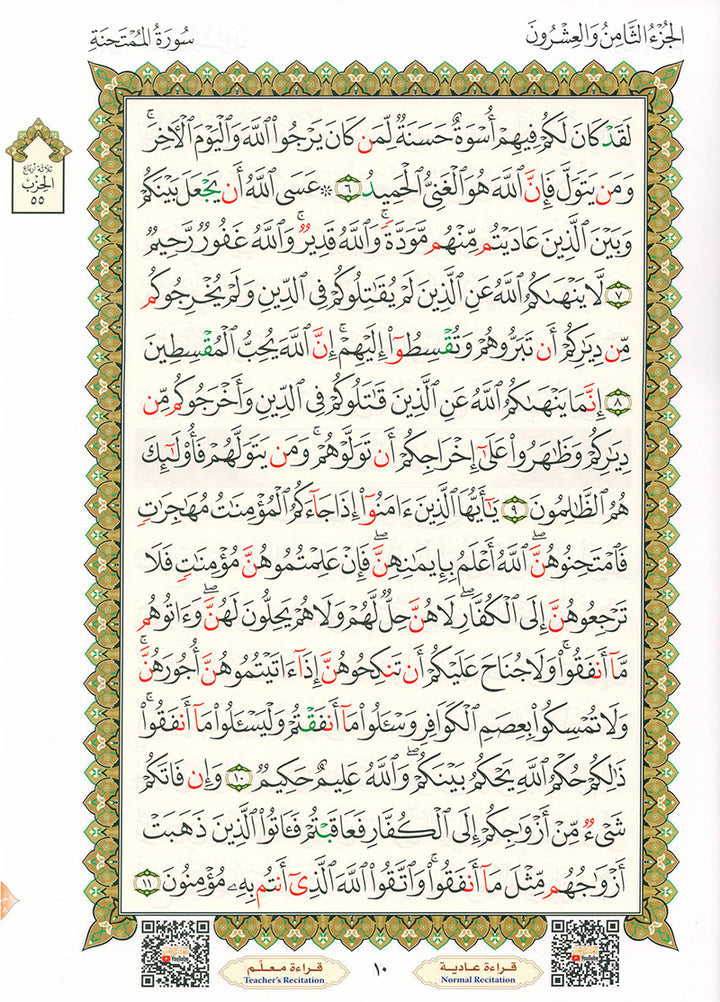 الجُزْءُ الثَّامِنُ وَالعِشْرُونَ
سُورَةُ المُمْتَحنَةِ
ثلاثة أرباع
الحِزْب
٥٥
لَقَدْ كَانَ لَكُمْ فِيهِمْ أُسْوَةٌ حَسَنَةٌ لِّمَن كَانَ يَرْجُوا۟ ٱللَّهَ وَٱلْيَوْمَ ٱلْأَخِرَ ۚ
وَمَن يَتَوَلَّ فَإِنَّ ٱللَّهَ هُوَ ٱلْغَنِىُّ ٱلْحَمِيدُ ٦ ۞ عَسَى ٱللَّهُ أَن يَجْعَلَ بَيْنَكُمْ
وَبَيْنَ ٱلَّذِينَ عَادَيْتُم مِّنْهُم مَّوَدَّةً ۚ وَٱللَّهُ قَدِيرٌ ۚ وَٱللَّهُ غَفُورٌ رَّحِيمٌ
٧ لَّا يَنْهَىٰكُمُ ٱللَّهُ عَنِ ٱلَّذِينَ لَمْ يُقَـٰتِلُوكُمْ فِى ٱلدِّينِ وَلَمْ يُخْرِجُوكُم
مِّن دِيَـٰرِكُمْ أَن تَبَرُّوهُمْ وَتُقْسِطُوٓا۟ إِلَيْهِمْ ۚ إِنَّ ٱللَّهَ يُحِبُّ ٱلْمُقْسِطِينَ
٨ إِنَّمَا يَنْهَىٰكُمُ ٱللَّهُ عَنِ ٱلَّذِينَ قَـٰتَلُوكُمْ فِى ٱلدِّينِ وَأَخْرَجُوكُم مِّن
دِيَـٰرِكُمْ وَظَـٰهَرُوا۟ عَلَىٰٓ إِخْرَاجِكُمْ أَن تَوَلَّوْهُمْ ۚ وَمَن يَتَوَلَّهُمْ فَأُو۟لَـٰٓئِكَ
هُمُ ٱلظَّـٰلِمُونَ ٩ يَـٰٓأَيُّهَا ٱلَّذِينَ ءَامَنُوٓا۟ إِذَا جَآءَكُمُ ٱلْمُؤْمِنَـٰتُ مُهَـٰجِرَٰتٍ
فَٱمْتَحِنُوهُنَّ ۖ ٱللَّهُ أَعْلَمُ بِإِيمَـٰنِهِنَّ ۖ فَإِنْ عَلِمْتُمُوهُنَّ مُؤْمِنَـٰتٍ فَلَا
تَرْجِعُوهُنَّ إِلَى ٱلْكُفَّارِ ۖ لَا هُنَّ حِلٌّ لَّهُمْ وَلَا هُمْ يَحِلُّونَ لَهُنَّ ۖ وَءَاتُوهُم
مَّآ أَنفَقُوا۟ ۚ وَلَا جُنَاحَ عَلَيْكُمْ أَن تَنكِحُوهُنَّ إِذَآ ءَاتَيْتُمُوهُنَّ أُجُورَهُنَّ ۚ
وَلَا تُمْسِكُوا۟ بِعِصَمِ ٱلْكَوَافِرِ وَسْـَٔلُوا۟ مَآ أَنفَقْتُمْ وَلْيَسْـَٔلُوا۟ مَآ أَنفَقُوا۟ ۚ
ذَٰلِكُمْ حُكْمُ ٱللَّهِ يَحْكُمُ بَيْنَكُمْ ۚ وَٱللَّهُ عَلِيمٌ حَكِيمٌ ١٠ وَإِن فَاتَكُمْ
شَىْءٌ مِّنْ أَزْوَٰجِكُمْ إِلَى ٱلْكُفَّارِ فَعَاقَبْتُمْ فَـَٔاتُوا۟ ٱلَّذِينَ ذَهَبَتْ
أَزْوَٰجُهُم مِّثْلَ مَآ أَنفَقُوا۟ ۚ وَٱتَّقُوا۟ ٱللَّهَ ٱلَّذِىٓ أَنتُم بِهِۦ مُؤْمِنُونَ ١١
قراءة عادية
Normal Recitation
١٠
قراءة معلّم
Teacher's Recitation
YouTube
YouTube